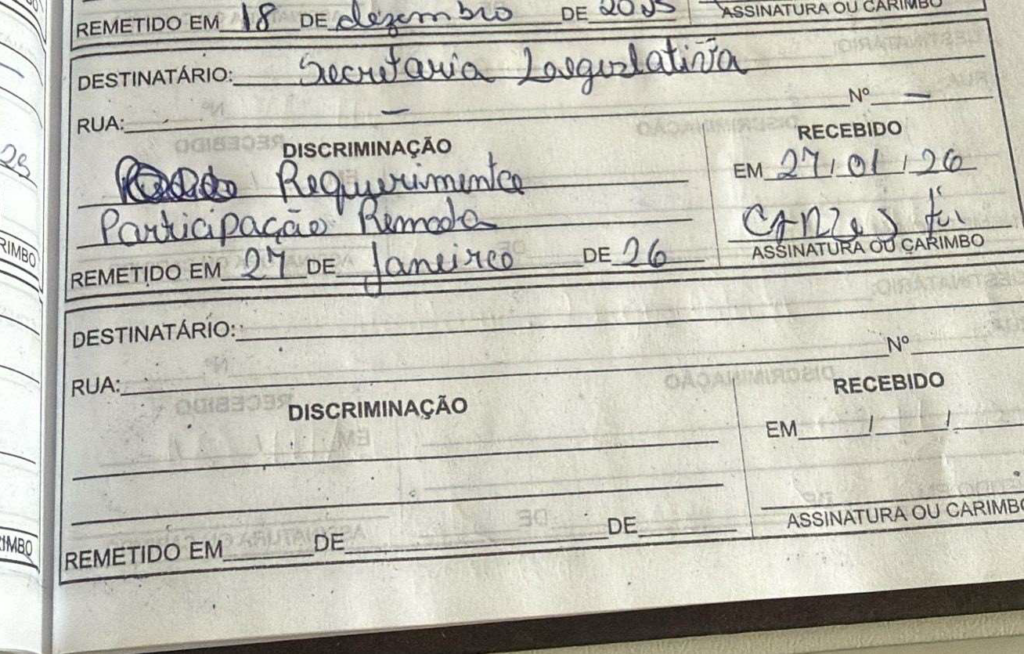 REMETIDO EM 18 DE dezembro DE 2025 ASSINATURA OU CARIMBO
DESTINATÁRIO: Secretaria Legislativa
RUA: — Nº —
DISCRIMINAÇÃO RECEBIDO
Requerimento EM 27/01/26
Participação Remota
REMETIDO EM 27 DE Janeiro DE 26 ASSINATURA OU CARIMBO
DESTINATÁRIO:
RUA: Nº
DISCRIMINAÇÃO RECEBIDO
EM / /
REMETIDO EM DE DE ASSINATURA OU CARIMBO